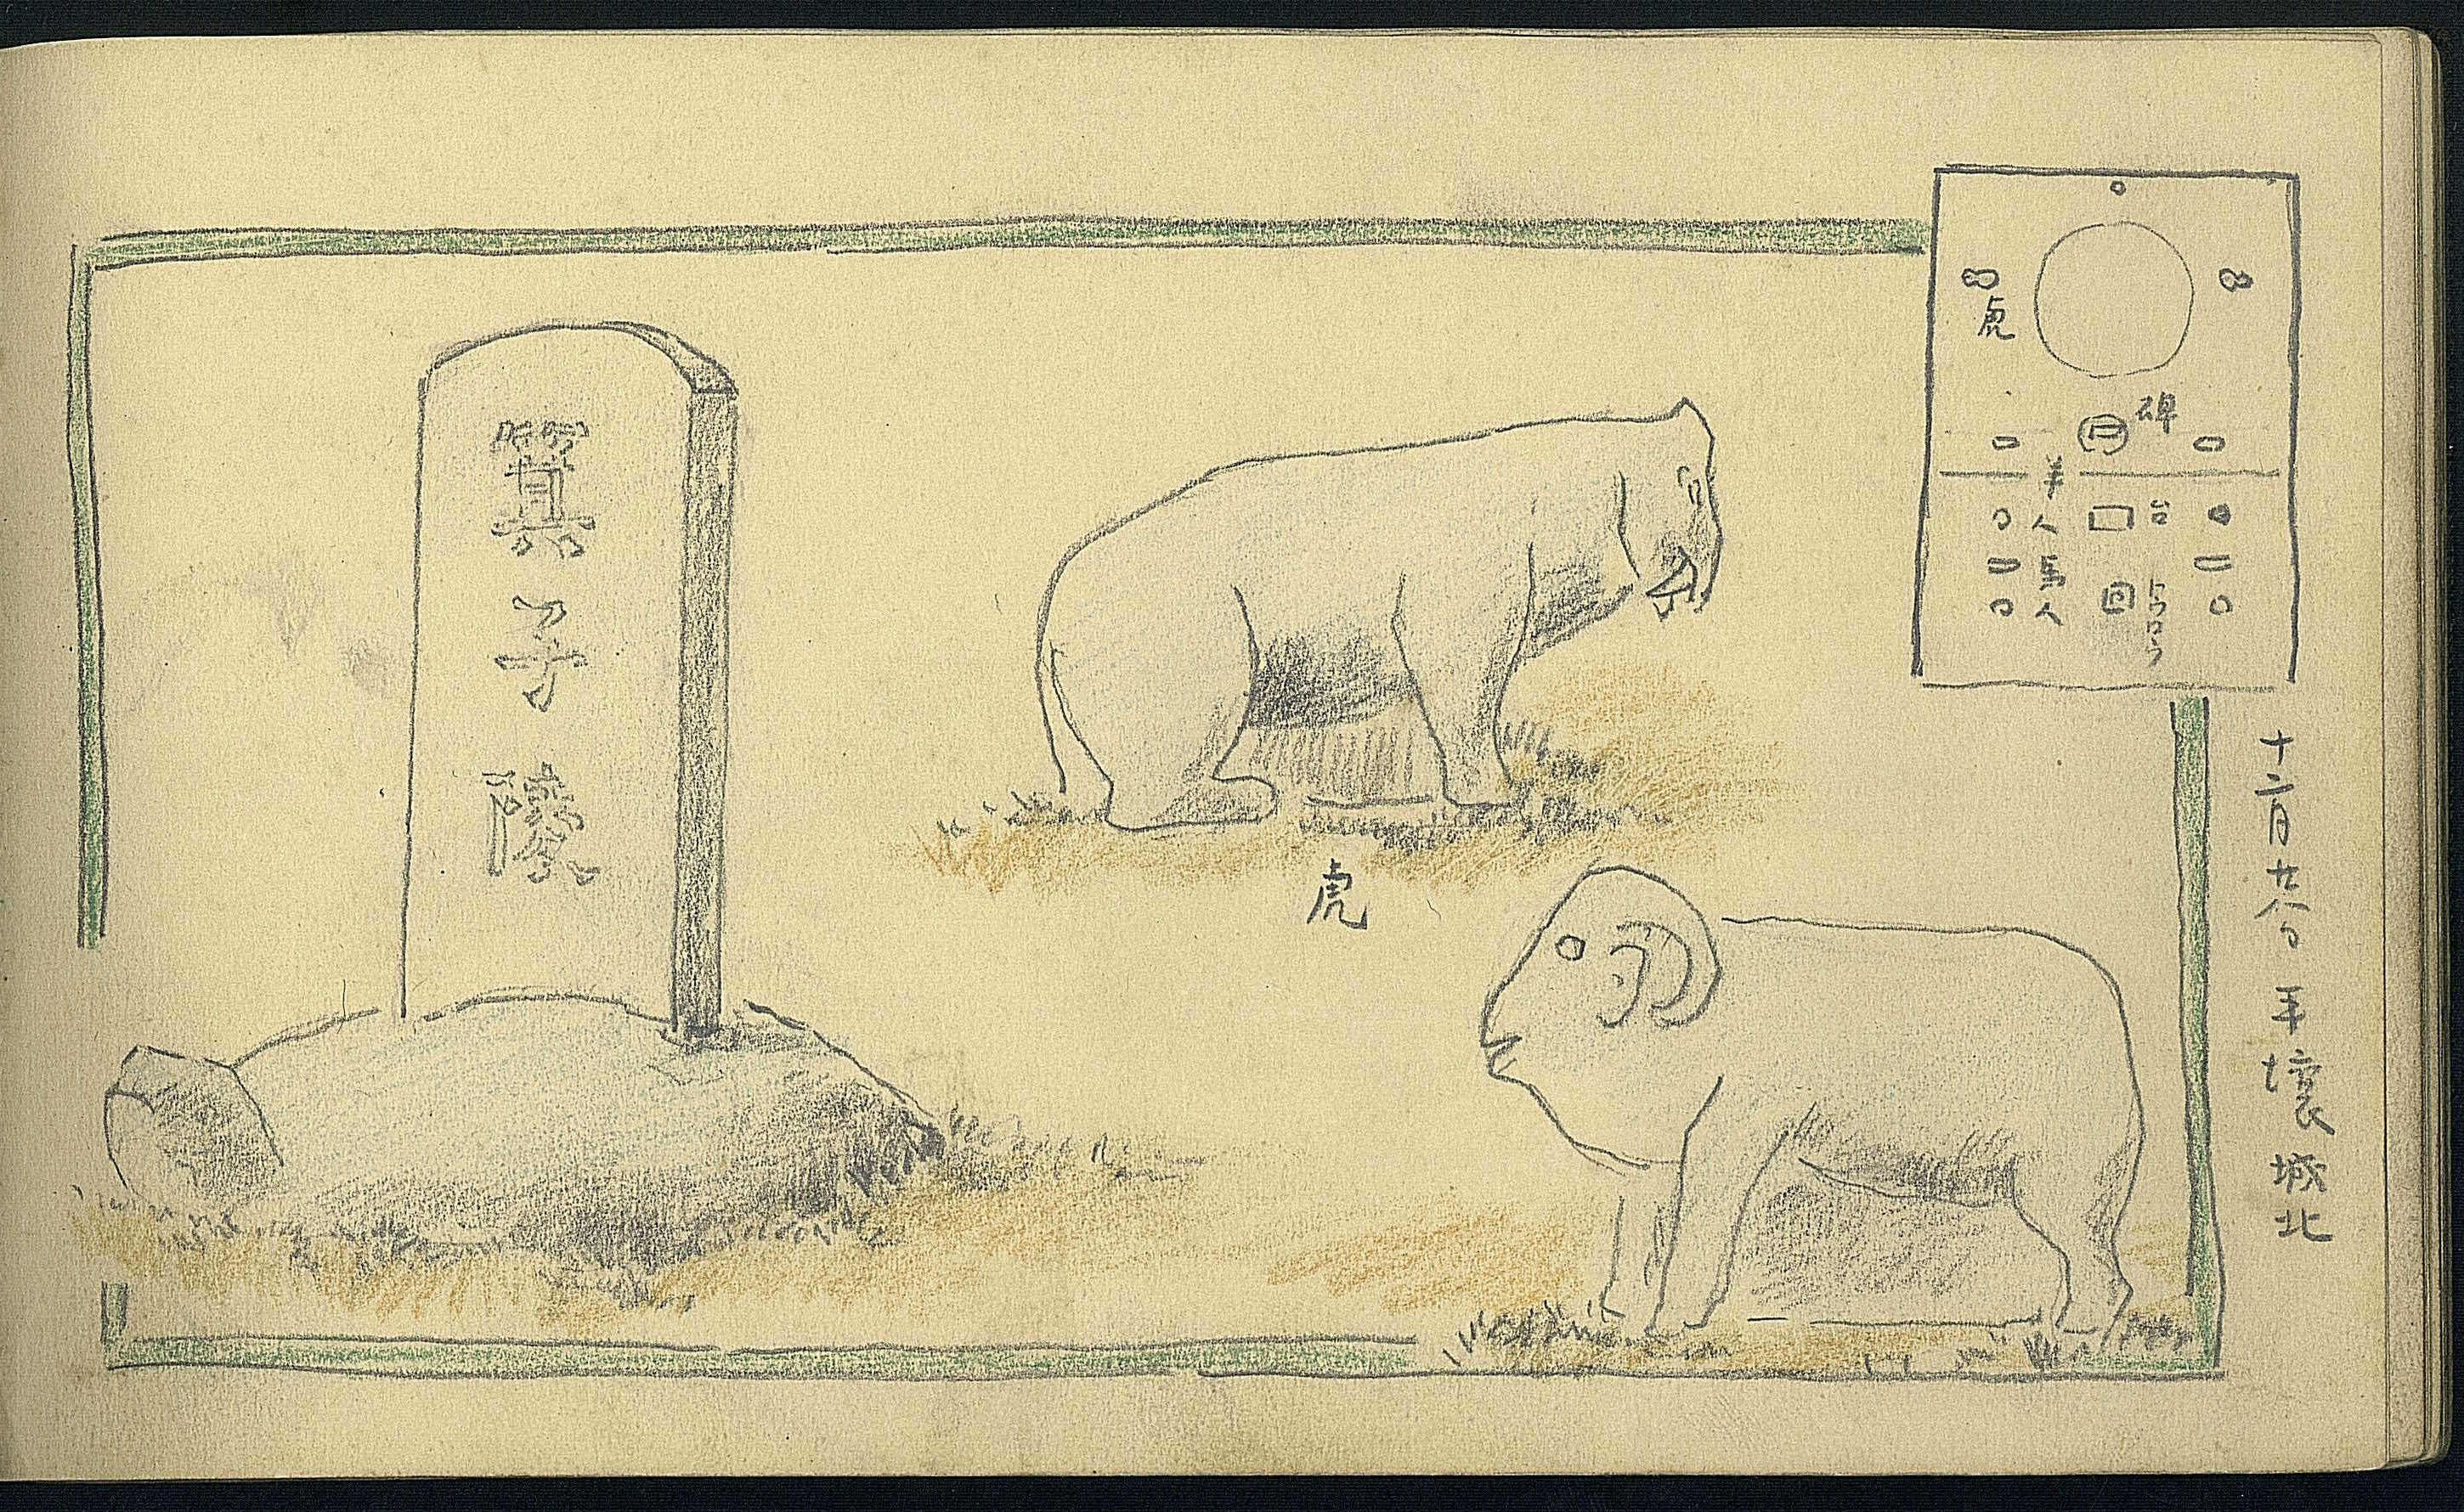 箕子陵
虎
虎
碑
羊
人 台
馬
人
トウロウ
十二月廿八日 平壤城北